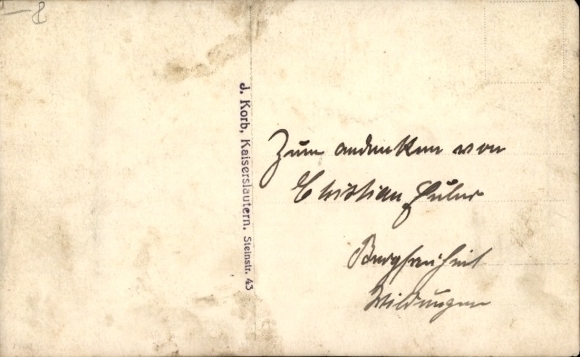 J. Korb, Kaiserslautern. Steinstr. 43
Zum andenken von
Christian Euler
Bergfreiheit
Wildungen